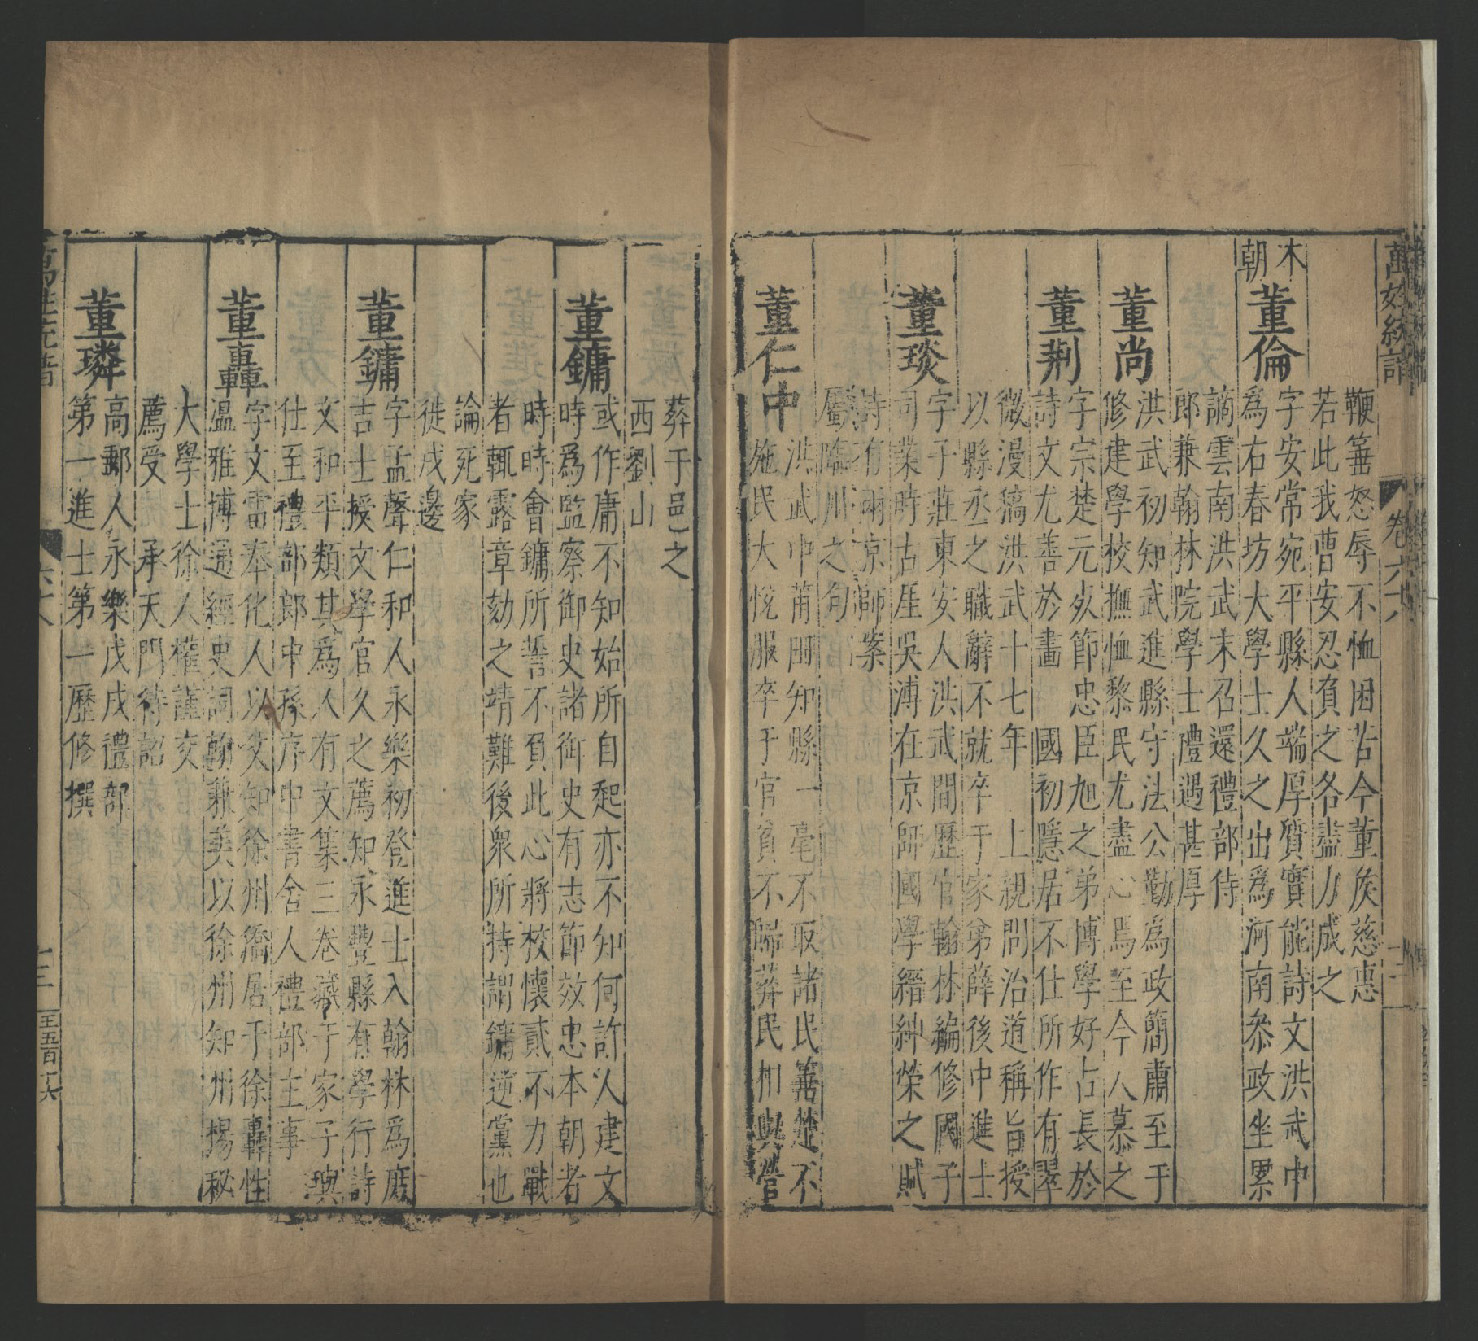 萬姓統譜
卷六六
鞭箠怒辱不恤困苦今董侯慈惠
若此我曹安忍負之各盡力成之
木朝
董倫
字安常宛平縣人端厚質實能詩文洪武中
為右春坊大學士久之出為河南叅政坐累
謫雲南洪武末召還禮部侍
郎兼翰林院學士禮遇甚厚
董尚
洪武初知武進縣守法公勤為政簡肅至于
修建學校撫恤黎民尤盡心焉至今人慕之
董荆
字宗楚元死節忠臣旭之弟博學好古長於
詩文尤善於畫 國初隱居不仕所作有翠
微漫稿洪武十七年 上親問治道稱旨授
以縣丞之職辭不就卒于家弟薛後中進士
董琰
字子莊東安人洪武間歷官翰林編修國子
司業時古厓吳溥在京師國學縉紳榮之賦
詩有兩京師案
劉臨川之句
董仁中
洪武中莆田知縣一毫不取諸民箠楚不
施民大悅服卒于官貧不歸葬民相與營
葬于邑之
西劉山
董鏞
或作庸不知始所自起亦不知何許人建文
時為監察御史諸御史有志節效忠本朝者
時時會鏞所誓不負此心將校懷貳不力戰
者輒露章劾之靖難後衆所持謂鏞逆黨也
論死家
徙戍邊
董鏞
字孟聲仁和人永樂初登進士入翰林為庶
吉士授文學官久之薦知永豐縣有學行詩
文和平類其為人有文集三卷藏于家子璵
仕至禮部郎中孫序中書舍人禮部主事
董轟
字文雷奉化人以父知徐州僑居于徐轟性
溫雅博通經史詞翰兼美以徐州知州揚秘
大學士徐人權謹交
薦受 承天門待詔
董璘
高郵人永樂戊戌禮部
第一進士第一歷修撰